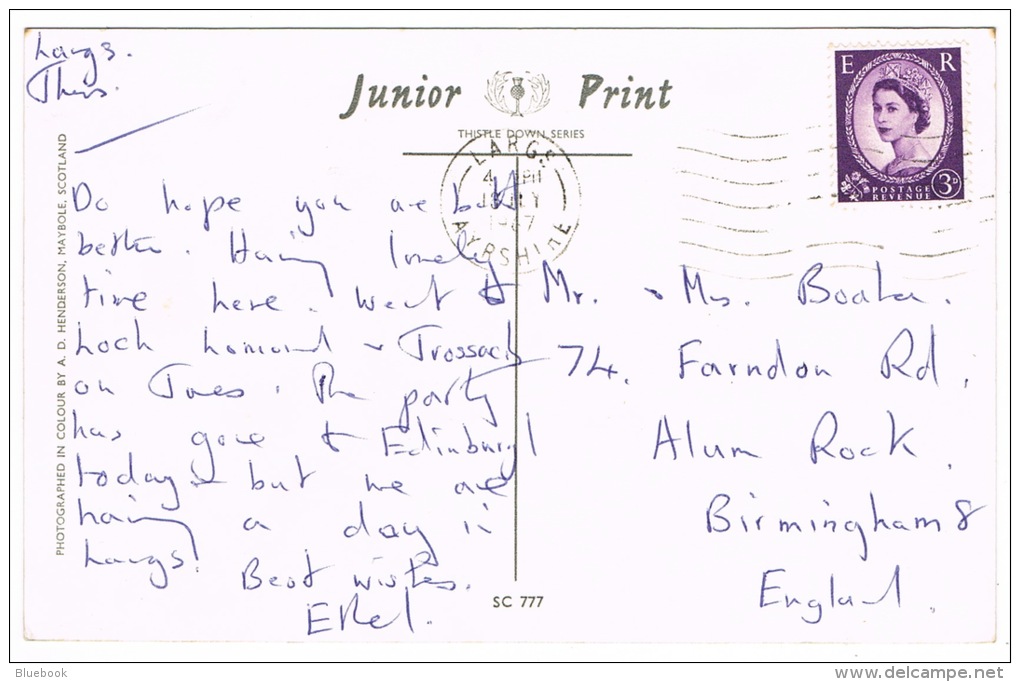 Largs.
Thurs.
Junior Print
THISTLE DOWN SERIES
E R
POSTAGE
REVENUE
3D
LARGS
AYRSHIRE
PHOTOGRAPHED IN COLOUR BY A. D. HENDERSON, MAYBOLE, SCOTLAND
Do hope you are both
better. Having lovely
time here. Went to
Loch Lomond & Trossachs
on Tues. The party
has gone to Edinburgh
today - but we are
having a day in
Largs.
Best wishes.
Ethel.
Mr. & Mrs.
74, Farndon Rd,
Alum Rock,
Birmingham 8
England.
SC 777
Bluebook
www.delcampe.net